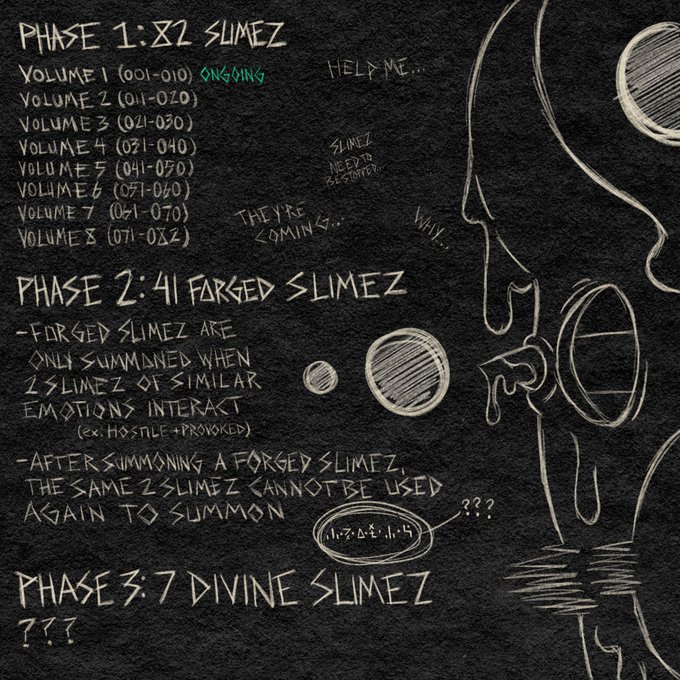 PHASE 1: 82 SLIMEZ
VOLUME 1 (001-010) ONGOING
VOLUME 2 (011-020)
VOLUME 3 (021-030)
VOLUME 4 (031-040)
VOLUME 5 (041-050)
VOLUME 6 (051-060)
VOLUME 7 (061-070)
VOLUME 8 (071-082)
HELP ME...
SLIMEZ
NEED TO
BE STOPPED...
THEY'RE
COMING...
WHY...
PHASE 2: 41 FORGED SLIMEZ
-FORGED SLIMEZ ARE
ONLY SUMMONED WHEN
2 SLIMEZ OF SIMILAR
EMOTIONS INTERACT
(ex: HOSTILE + PROVOKED)
-AFTER SUMMONING A FORGED SLIMEZ,
THE SAME 2 SLIMEZ CANNOT BE USED
AGAIN TO SUMMON
???
PHASE 3: 7 DIVINE SLIMEZ
???